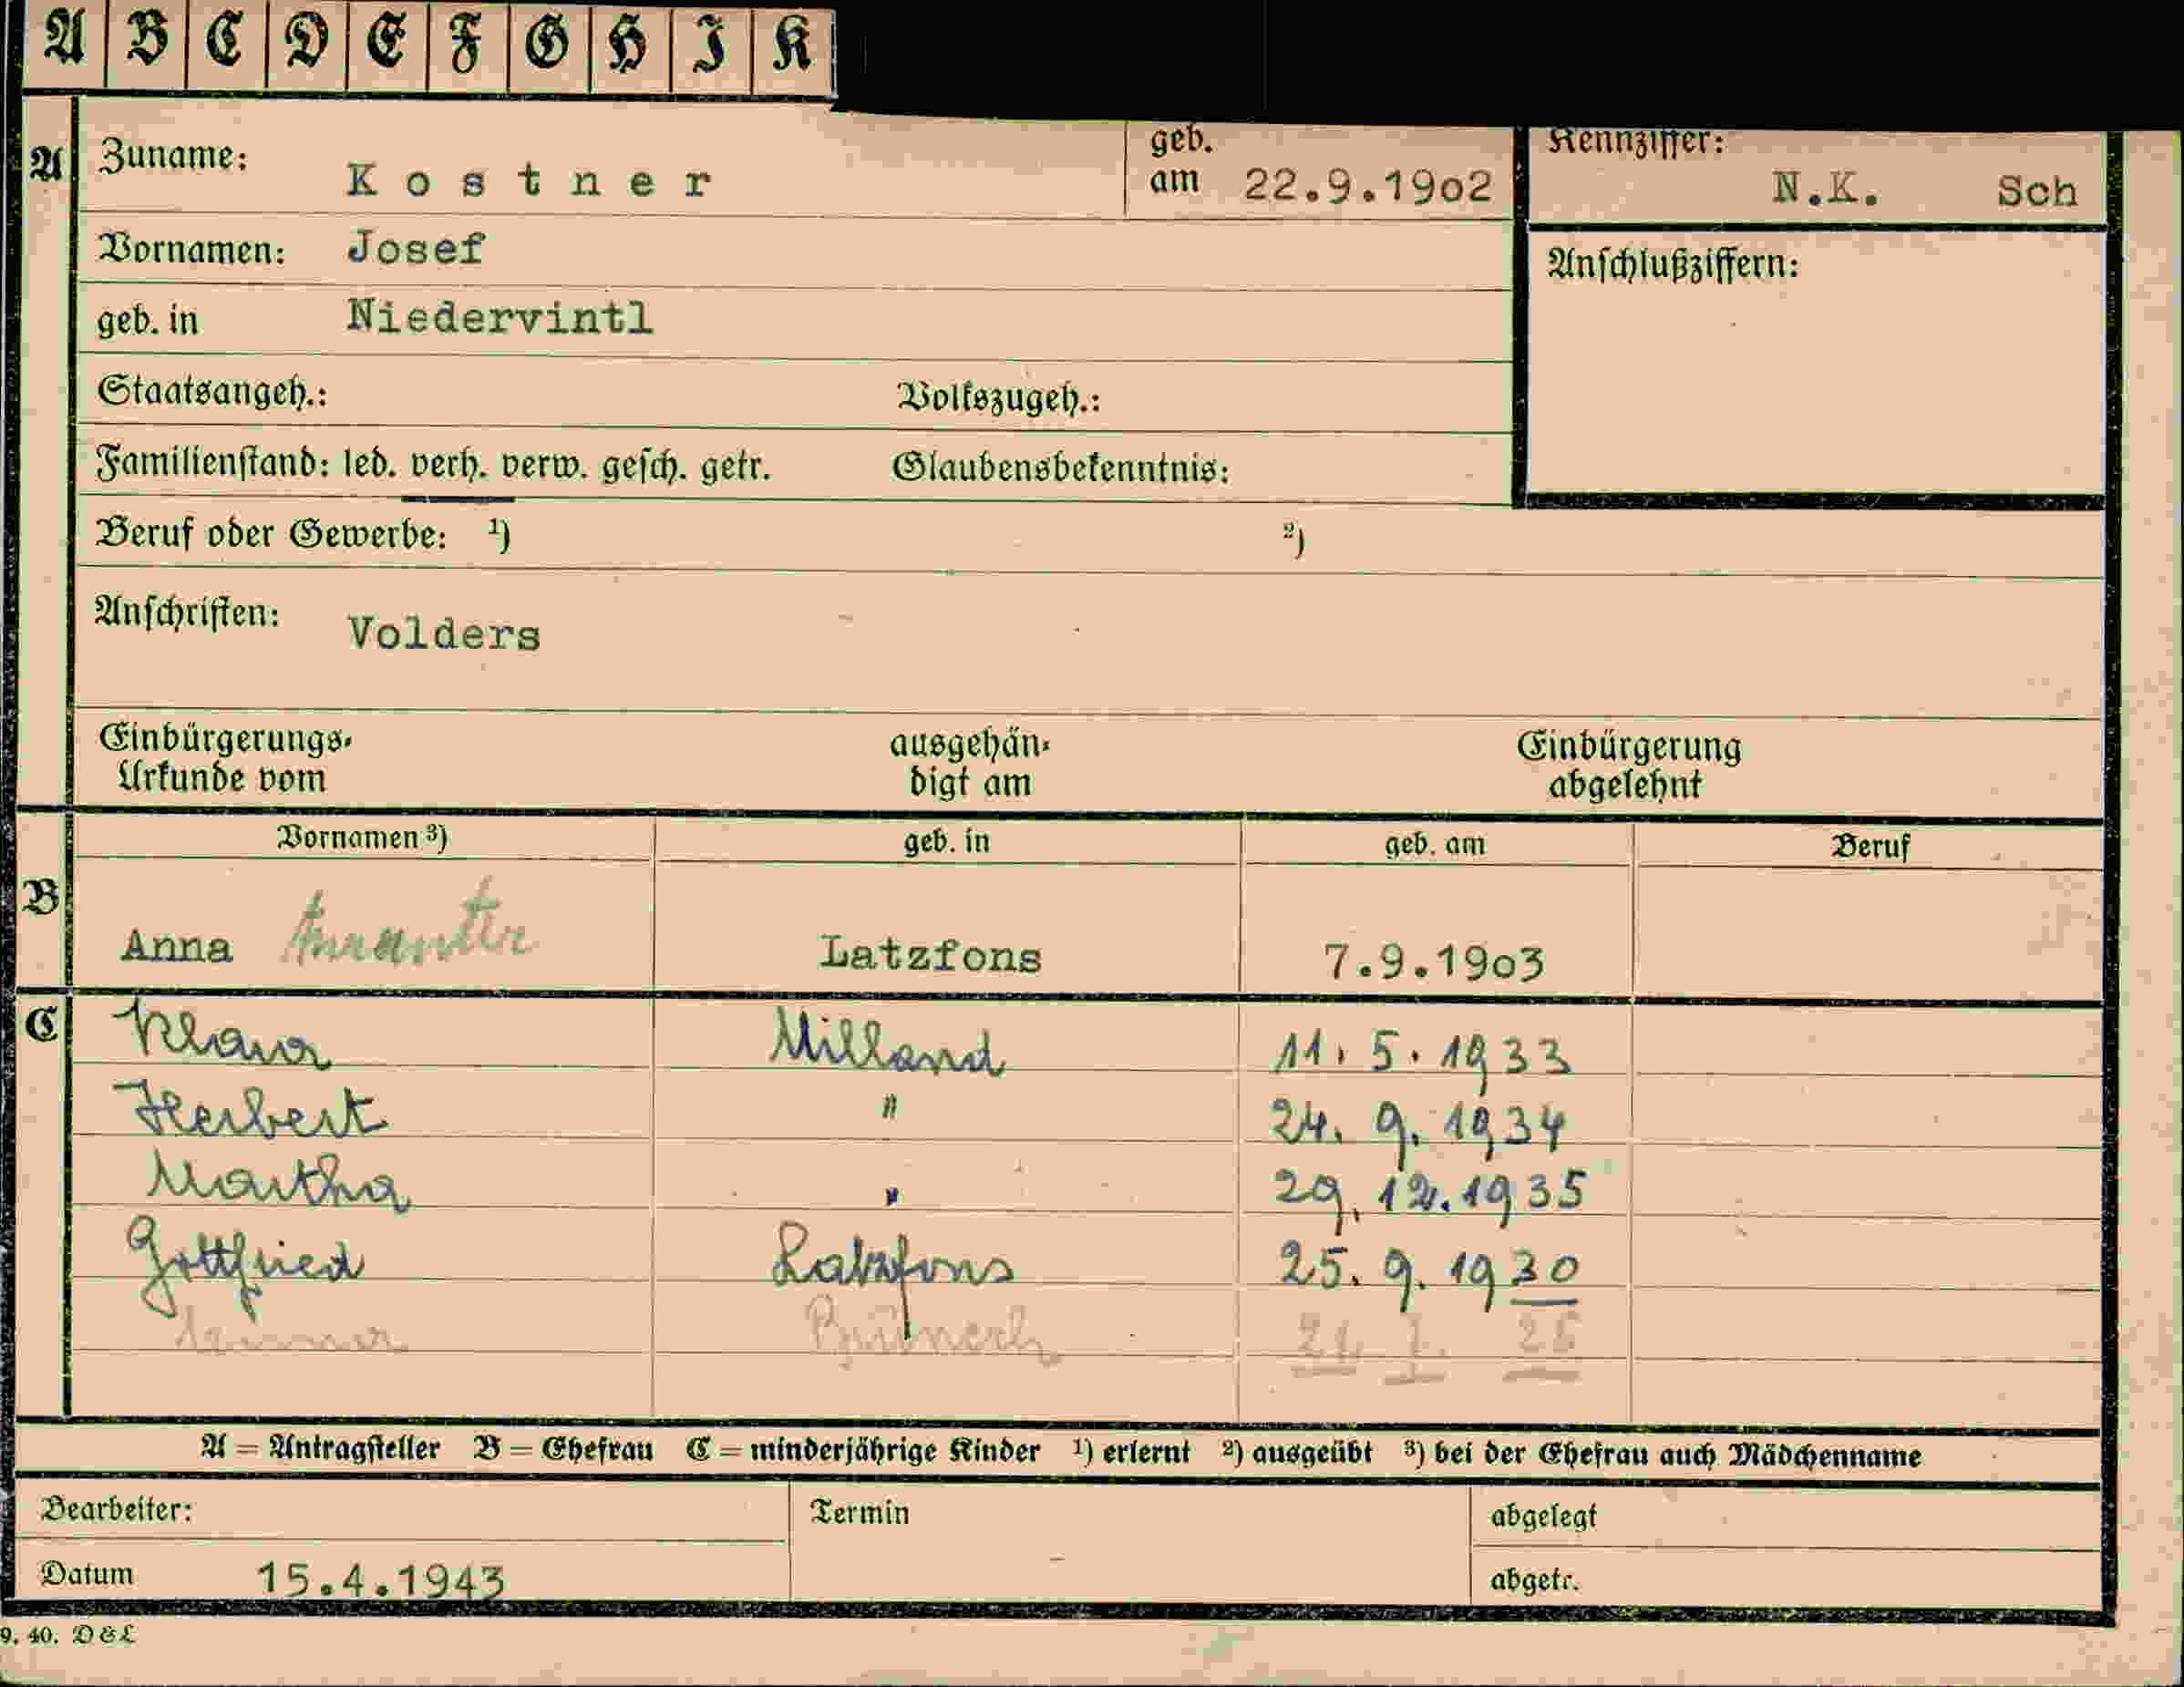 A B C D E F G H I K
A Zuname: Kostner geb. am 22.9.1902 Kennziffer: N.K. Sch
Vornamen: Josef Anschlußziffern:
geb. in Niedervintl
Staatsangeh.: Volkszugeh.:
Familienstand: led. verh. verw. gesch. getr. Glaubensbekenntnis:
Beruf oder Gewerbe: 1) 2)
Anschriften: Volders
Einbürgerungs- ausgehän- Einbürgerung
Urkunde vom digt am abgelehnt
Vornamen 3) geb. in geb. am Beruf
B Anna Latzfons 7.9.1903
C Klara Milland 11. 5. 1933
Herbert " 24. 9. 1934
Martha " 29. 12. 1935
Gottfried Latzfons 25. 9. 1930
A = Antragsteller B = Ehefrau C = minderjährige Kinder 1) erlernt 2) ausgeübt 3) bei der Ehefrau auch Mädchenname
Bearbeiter: Termin abgelegt
Datum 15.4.1943 abgetr.
9. 40. D&L